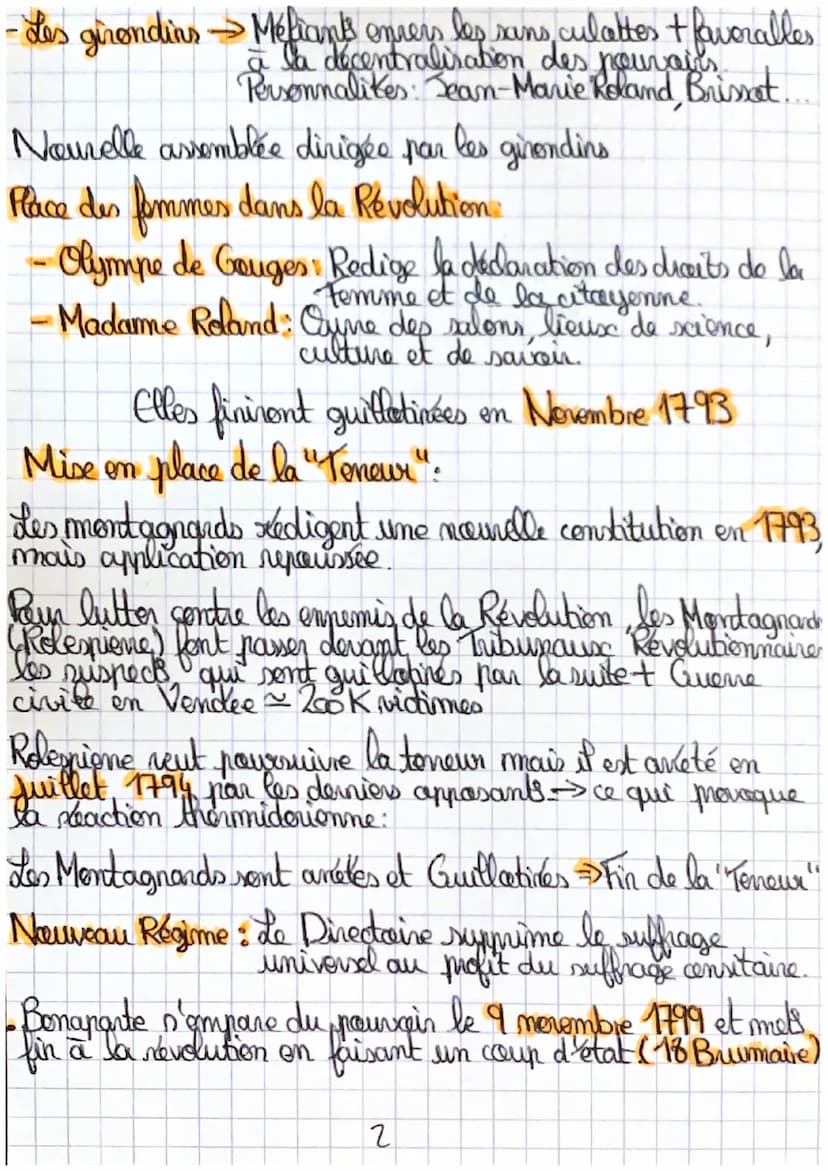 - Les girondins → Méfiants envers les sans culottes + favorables
à la décentralisation des pouvoirs.
Personnalités: Jean-Marie Roland, Brissot...
Nouvelle assemblée dirigée par les girondins
Place des femmes dans la Révolution:
- Olympe de Gouges: Redige la déclaration des droits de la
femme et de la citoyenne.
- Madame Roland: Ouvre des salons, lieux de science,
culture et de savoir.
Elles finiront guillotinées en Novembre 1793
Mise en place de la "Terreur":
Les montagnards rédigent une nouvelle constitution en 1793,
mais application repoussée.
Pour lutter contre les ennemis de la Révolution, les Montagnards
(Robespierre) font passer devant les Tribunaux Révolutionnaires
les suspects, qui sont guillotinés par la suite + Guerre
civile en Vendée ≃ 200K victimes
Robespierre veut poursuivre la terreur mais il est arrêté en
Juillet 1794 par les derniers opposants → ce qui provoque
la réaction thermidorienne:
Les Montagnards sont arrêtés et Guillotinés ⇒ Fin de la "Terreur"
Nouveau Régime : Le Directoire supprime le suffrage
universel au profit du suffrage censitaire.
. Bonaparte s'empare du pouvoir le 9 novembre 1799 et mets
fin à la révolution en faisant un coup d'état (18 Brumaire)
2